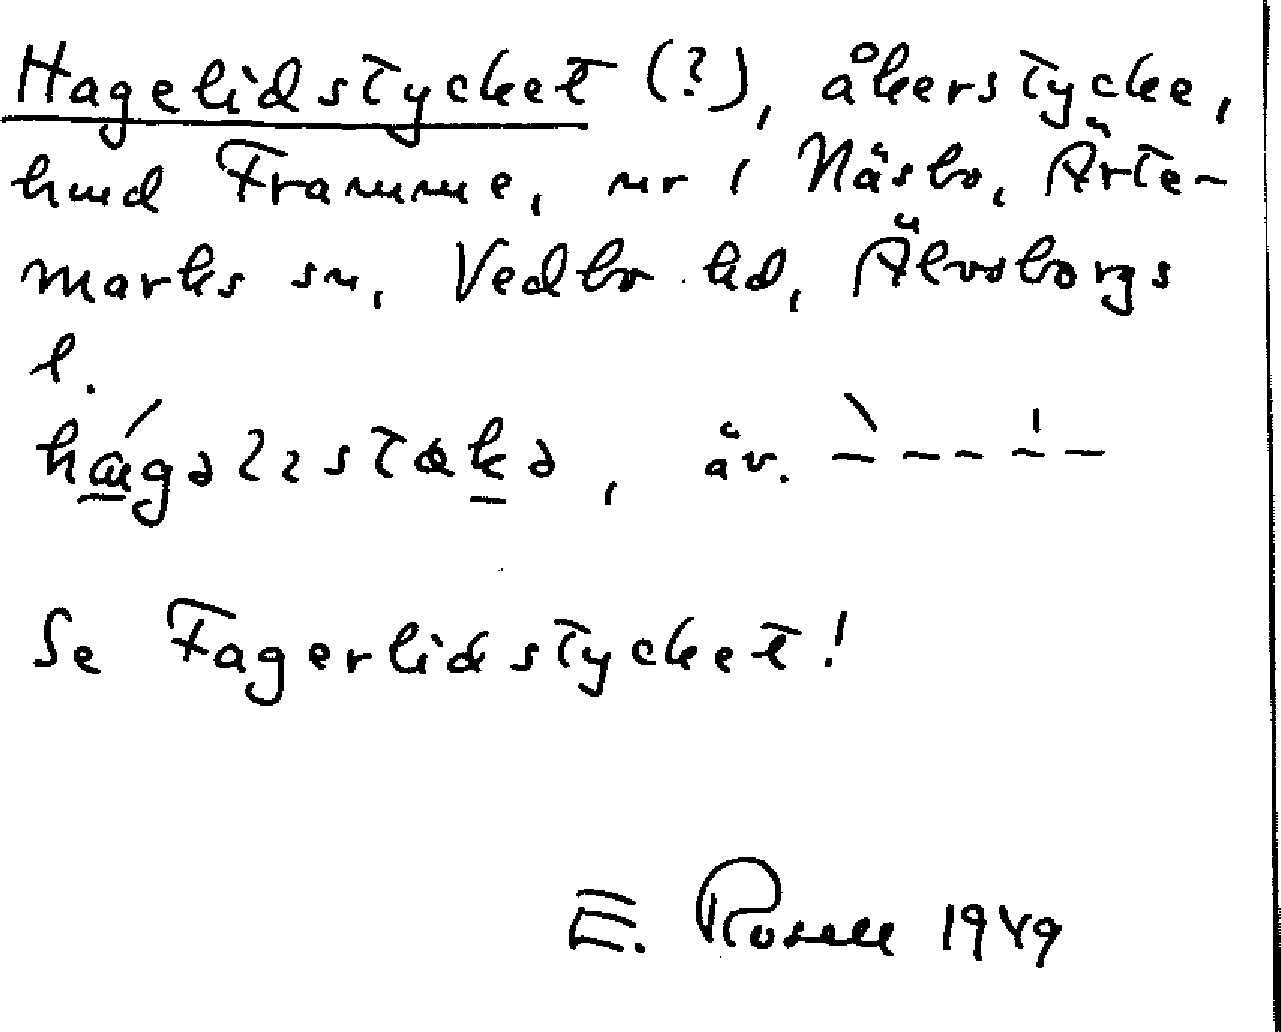 Hagelidstycket (?), åkerstycke,
hmd Framme, nr 1 Näsbo, Ärte-
marks sn, Vedbo hd, Älvsborgs
l.
äv.
Se Fagerlidstycket!
E. Rosell 1949